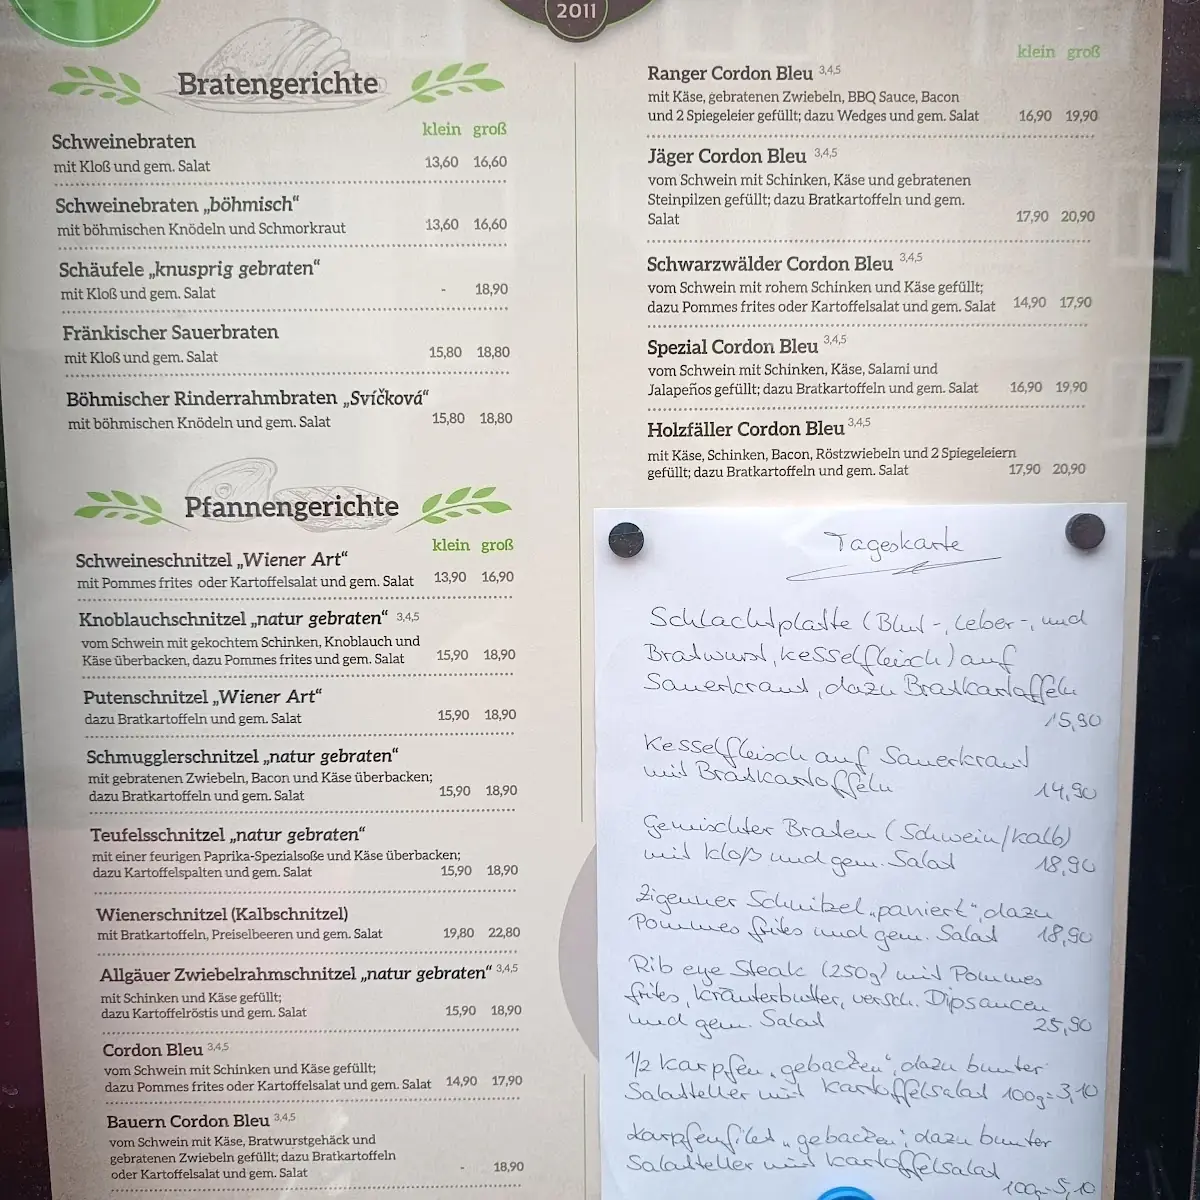 2011
Bratengerichte
klein groß
Schweinebraten
mit Kloß und gem. Salat 13,60 16,60
Schweinebraten „böhmisch“
mit böhmischen Knödeln und Schmorkraut 13,60 16,60
Schäufele „knusprig gebraten“
mit Kloß und gem. Salat - 18,90
Fränkischer Sauerbraten
mit Kloß und gem. Salat 15,80 18,80
Böhmischer Rinderrahmbraten „Svíčková“
mit böhmischen Knödeln und gem. Salat 15,80 18,80
Pfannengerichte
klein groß
Schweineschnitzel „Wiener Art“
mit Pommes frites oder Kartoffelsalat und gem. Salat 13,90 16,90
Knoblauchschnitzel „natur gebraten“ 3,4,5
vom Schwein mit gekochtem Schinken, Knoblauch und
Käse überbacken, dazu Pommes frites und gem. Salat 15,90 18,90
Putenschnitzel „Wiener Art“
dazu Bratkartoffeln und gem. Salat 15,90 18,90
Schmugglerschnitzel „natur gebraten“
mit gebratenen Zwiebeln, Bacon und Käse überbacken;
dazu Bratkartoffeln und gem. Salat 15,90 18,90
Teufelsschnitzel „natur gebraten“
mit einer feurigen Paprika-Spezialsoße und Käse überbacken;
dazu Kartoffelspalten und gem. Salat 15,90 18,90
Wienerschnitzel (Kalbschnitzel)
mit Bratkartoffeln, Preiselbeeren und gem. Salat 19,80 22,80
Allgäuer Zwiebelrahmschnitzel „natur gebraten“ 3,4,5
mit Schinken und Käse gefüllt;
dazu Kartoffelröstis und gem. Salat 15,90 18,90
Cordon Bleu 3,4,5
vom Schwein mit Schinken und Käse gefüllt;
dazu Pommes frites oder Kartoffelsalat und gem. Salat 14,90 17,90
Bauern Cordon Bleu 3,4,5
vom Schwein mit Käse, Bratwurstgehäck und
gebratenen Zwiebeln gefüllt; dazu Bratkartoffeln
oder Kartoffelsalat und gem. Salat - 18,90
klein groß
Ranger Cordon Bleu 3,4,5
mit Käse, gebratenen Zwiebeln, BBQ Sauce, Bacon
und 2 Spiegeleier gefüllt; dazu Wedges und gem. Salat 16,90 19,90
Jäger Cordon Bleu 3,4,5
vom Schwein mit Schinken, Käse und gebratenen
Steinpilzen gefüllt; dazu Bratkartoffeln und gem.
Salat 17,90 20,90
Schwarzwälder Cordon Bleu 3,4,5
vom Schwein mit rohem Schinken und Käse gefüllt;
dazu Pommes frites oder Kartoffelsalat und gem. Salat 14,90 17,90
Spezial Cordon Bleu 3,4,5
vom Schwein mit Schinken, Käse, Salami und
Jalapeños gefüllt; dazu Bratkartoffeln und gem. Salat 16,90 19,90
Holzfäller Cordon Bleu 3,4,5
mit Käse, Schinken, Bacon, Röstzwiebeln und 2 Spiegeleiern
gefüllt; dazu Bratkartoffeln und gem. Salat 17,90 20,90
Tageskarte
Schlachtplatte (Blut-, Leber-, und
Bratwurst, Kesselfleisch) auf
Sauerkraut, dazu Bratkartoffeln
15,90
Kesselfleisch auf Sauerkraut
mit Bratkartoffeln 14,90
Gemischter Braten (Schwein/Kalb)
mit Kloß und gem. Salat 18,90
Zigeuner Schnitzel „paniert“, dazu
Pommes frites und gem. Salat 18,90
Rib eye Steak (250g) mit Pommes
frites, Kräuterbutter, versch. Dipsaucen
und gem. Salat 25,90
1/2 Karpfen „gebacken“, dazu bunter
Salatteller mit Kartoffelsalat 100g=3,10
Karpfenfilet „gebacken“, dazu bunter
Salatteller mit Kartoffelsalat
100g=5,10